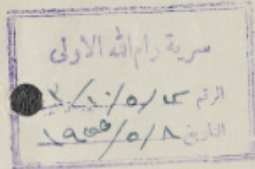 سرية رام الله الاولى
الرقم
التاريخ ٨/٥/١٩٥٥